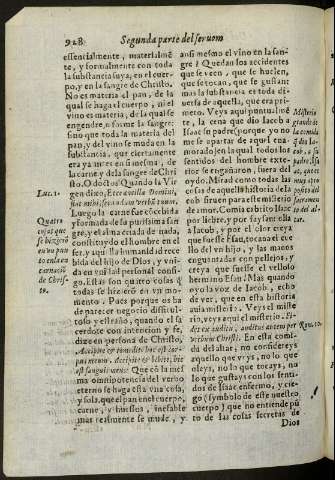 928 Segunda parte del sermom
essencialmente, materialmẽ
te, y formalmente con toda
la substancia suya, en el cuer-
po, y en la sangre de Christo.
No es materia el pan, de la
qual se haga el cuerpo, ni el
vino es materia, de la qual se
engendre, o forme la sangre:
sino que toda la materia del
pan, y del vino se muda en la
substancia, que ciertamente
era ya antes en si mesma, de
la carne y de la sangre de Chri
sto. O doctos! Quando la Vir
gen dixo, Ecce ancilla Domini,
fiat mihi secundum verbũ tuum.
Luego la carne fue cõcebida
y formada la purissima san-
gre, y el alma criada de nada,
constituydo el hombre en el
ser, y aquella humanidad reci
bida del hijo de Dios, y vni-
da en vnidad personal consi-
go. Estas son quatro cosas y
todas se hizieron en vn mo-
mento. Pues porque os ha
de parecer negocio dificul-
toso y estraño, quando el sa
cerdote con intencion y fe,
dize en persona de Christo,
Accipite & comedite: hoc est cor-
pus meum. Accipite & bibite, hic
est sanguis meus: Que cõ la mes
ma omnipotencia del verbo
eterno se haga esta vna cosa,
y sola, que el pan en el cuerpo,
carne, y huessos, inefable
mas realmente se mude, y
Luc. 1.
Quatro
cosas que
se hizierõ
en vn pun
to en la en
carnaciõ
de Chris-
to.
ansi mesmo el vino en la san-
gre? Quedan los accidentes
que se veen, que se huelen,
que se tocan, que se gustan:
mas la substancia es toda di-
uersa de aquella, que era pri-
mero. Veys aqui puntualmẽ
te, la cena que dio Iacob a
Isaac su padre (porque yo no
me se apartar de aquel ena-
morado) en la qual todos los
sentidos del hombre exte-
rior se engañaron, fuera del
oydo. Mirad como todas las
cosas de aquella historia de Ia
cob siruen para este misterio
de amor. Comia cabrito Isaac
por liebre, y por Esau tenia
a Iacob, y por el olor creya
que fuesse Esau, tocaua el cue
llo del vn hijo, y las manos
enguantadas con pellejos, y
creya que fuesse el velloso
hermano Esau: Mas quando
oyo la voz de Iacob, echo
de ver, que en esta historia
auia misterio. Veys el miste
rio, veys aqui el misterio. Fi-
des ex auditu, auditus autem per
verbum Christi. En esta comi-
da del altar, no considereys
aquello que veys, no lo que
oleys, no lo que tocays, no
lo que gustays con los senti-
dos de Isaac enfermo, y cie-
go (symbolo de este nuestro
cuerpo) que no entiende pũ
to de las cosas secretas de
Dios
Misterio
grande de
la comida
q̃ dio Ia-
cob, a su
padre Isa
ac, que es
muy apro
posito del
sacramen
to del al-
tar.
Rom. 10.